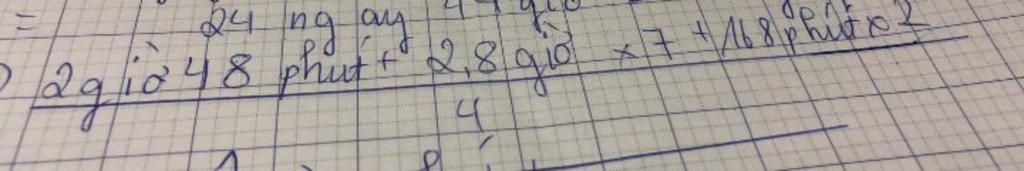 = 24 ng ay
2 giờ 48 phút + 2,8 giờ x 7 + 168 phút x 2
4